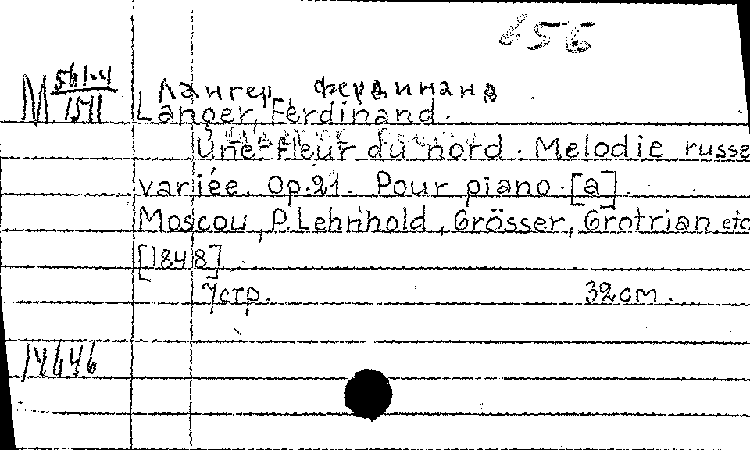 656
М 561-4/1511
Лангер, Фердинанд
Langer, Ferdinand.
Une fleur du nord. Melodie russe
variée. Op.21. Pour piano. [a].
Moscou, P. Lehnhold, Grösser, Grotrian etc
[1848]
7 стр. 32 cm.
14646